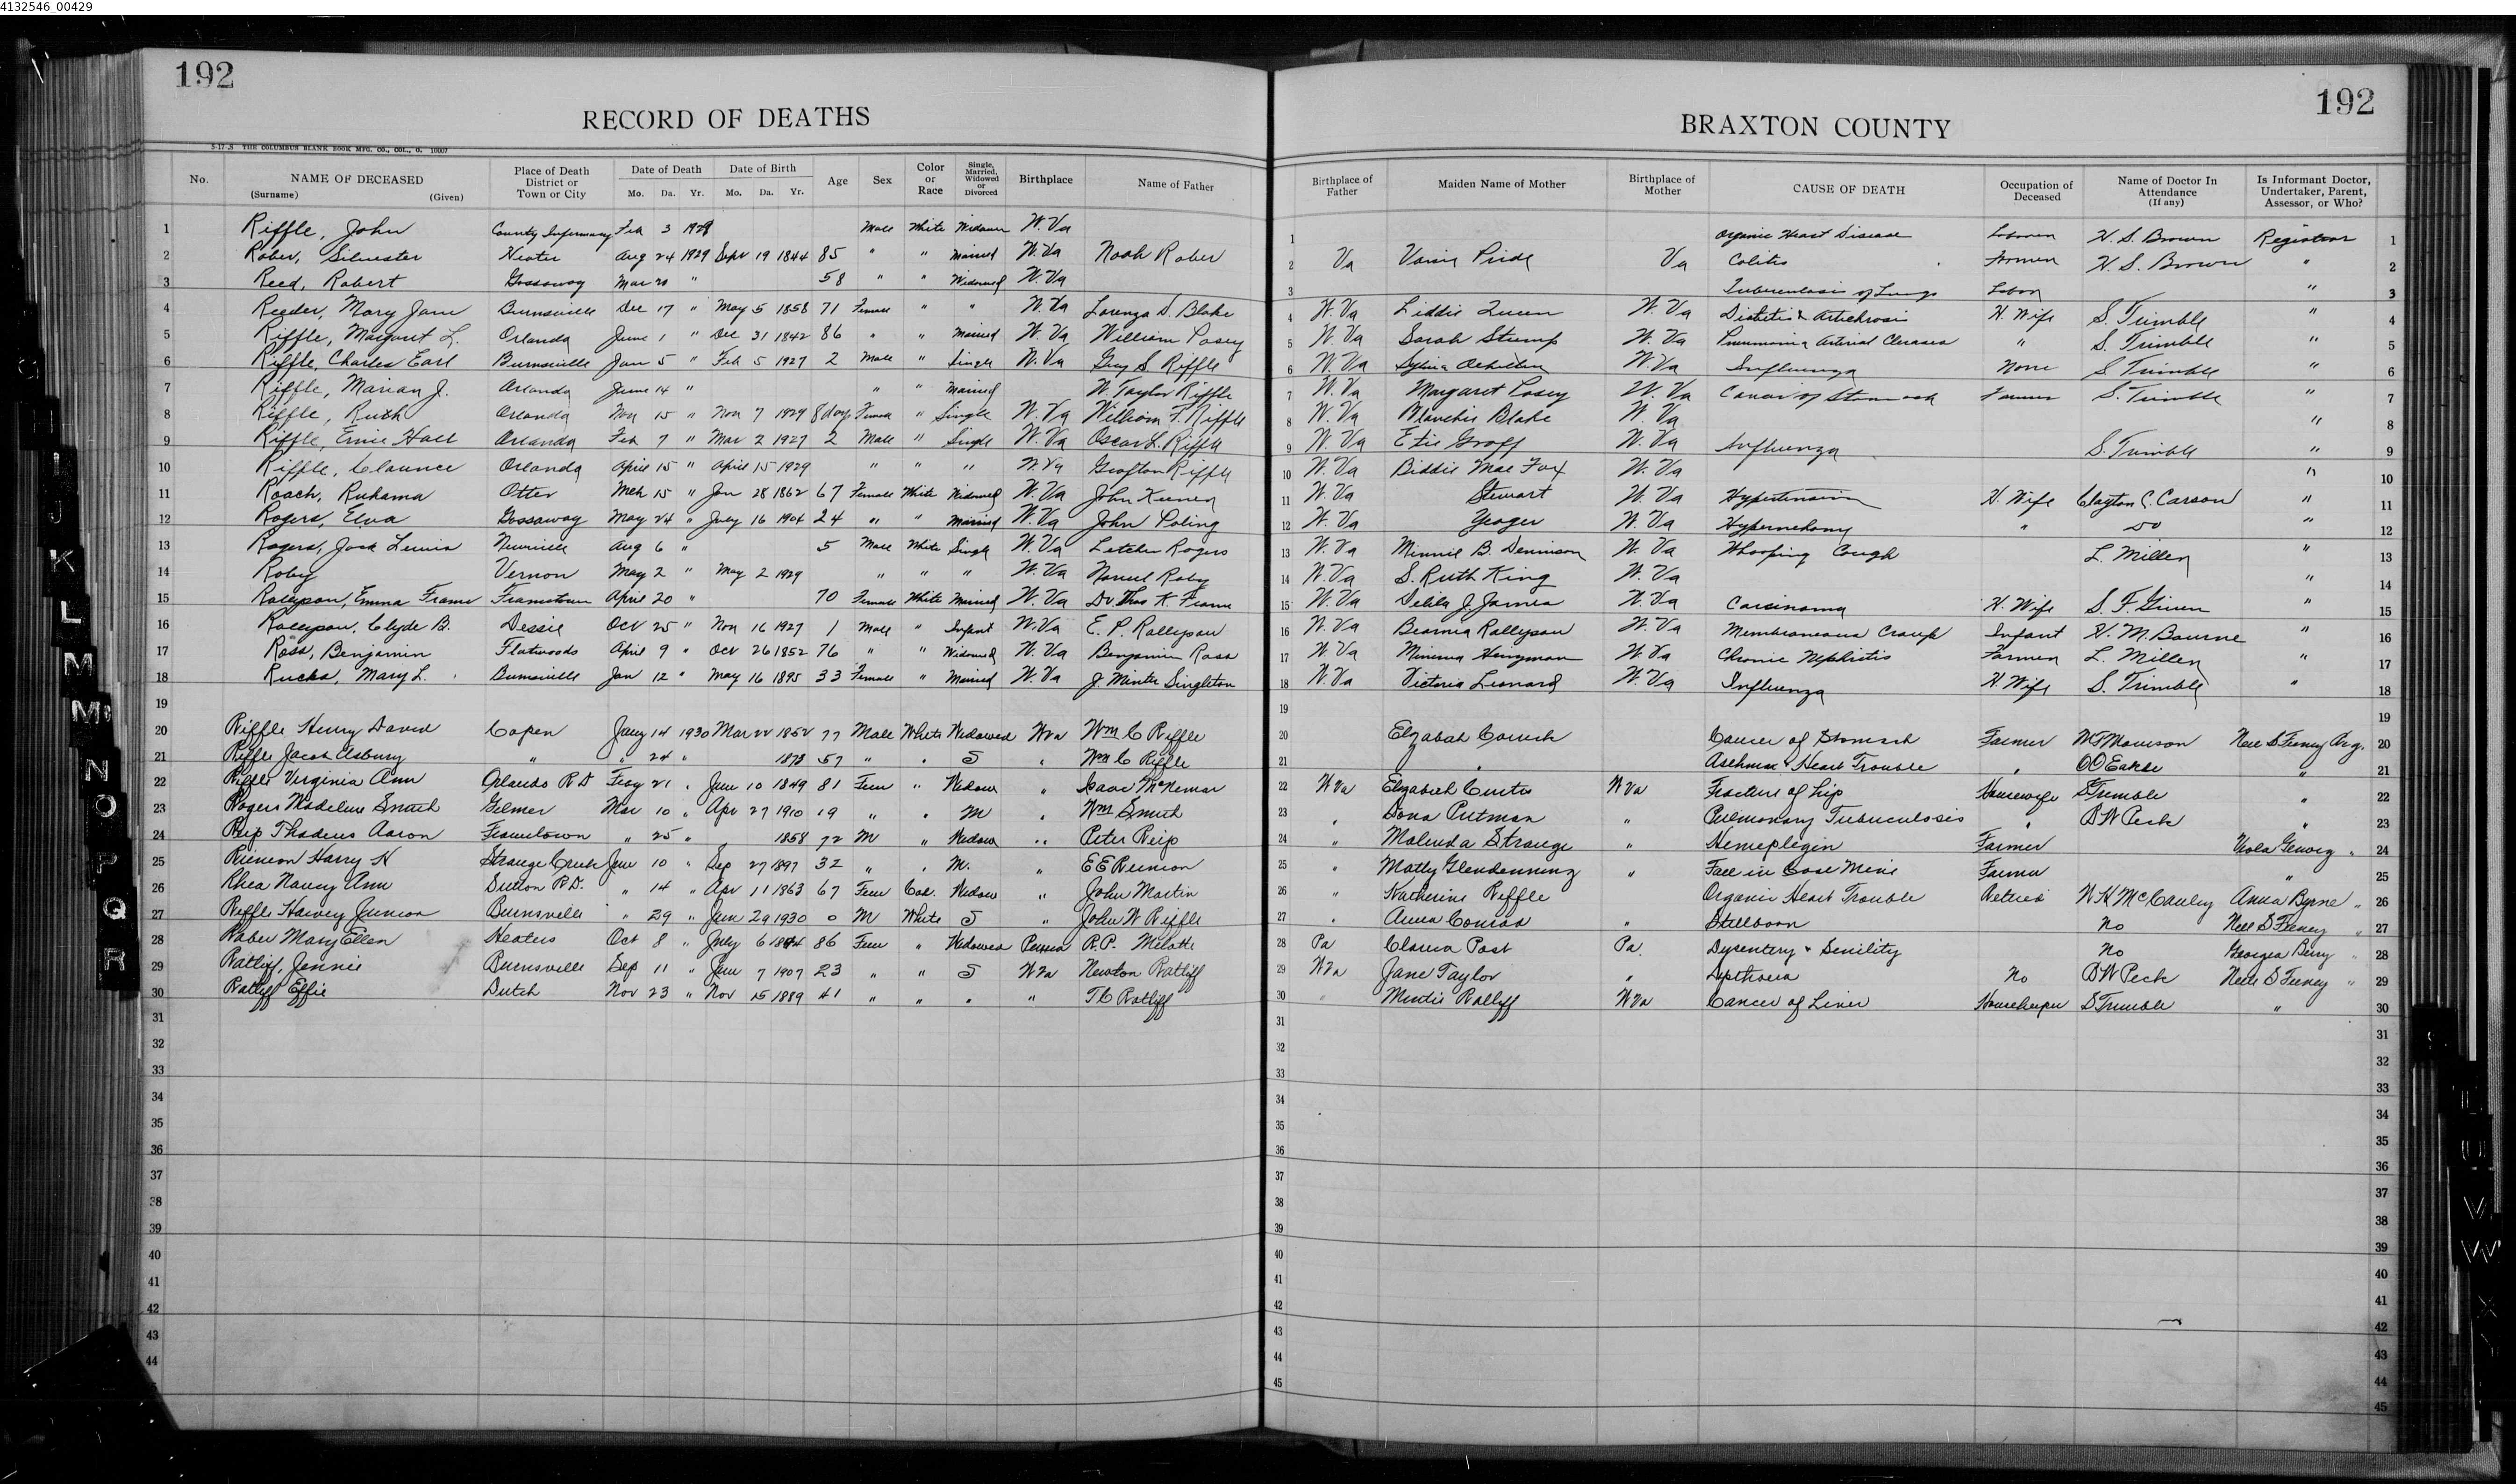 4132546_00429
192
192
RECORD OF DEATHS
BRAXTON COUNTY
THE COLUMBUS BLANK BOOK MFG. CO., COL., O. 10007
No. NAME OF DECEASED (Surname) (Given) Place of Death District or Town or City Date of Death Mo. Da. Yr. Date of Birth Mo. Da. Yr. Age Sex Color or Race Single, Married, Widowed or Divorced Birthplace Name of Father Birthplace of Father Maiden Name of Mother Birthplace of Mother CAUSE OF DEATH Occupation of Deceased Name of Doctor In Attendance (If any) Is Informant Doctor, Undertaker, Parent, Assessor, or Who?
1 Riffle, John County Infirmary Feb 3 1929 Male White Widower W. Va 1 Organic Heart Disease H. S. Brown Registrar 1
2 Rober, Silvester Heater Aug 24 1929 Sept 19 1844 85 " " Married W. Va Noah Rober 2 Va Pride Va Colitis Farmer H. S. Brown " 2
3 Reed, Robert Gassaway Mar 20 " 58 " " Widowed W. Va 3 Tuberculosis of Lungs Labor " 3
4 Reeder, Mary Jane Burnsville Dec 17 " May 5 1858 71 Female " " W. Va Lorenzo D. Blake 4 W. Va Liddie Queen W. Va H. Wife S. Trimble " 4
5 Riffle, Margaret L. Orlando June 1 " Dec 31 1842 86 " " Married W. Va William Posey 5 W. Va Sarah Stump W. Va Pneumonia Arterial " S. Trimble " 5
6 Riffle, Charles Earl Burnsville Jan 5 " Feb 5 1927 2 Male " Single W. Va Guy S. Riffle 6 W. Va Sylvia W. Va Influenza None S Trimble " 6
7 Riffle, Marian J. Orlando June 14 " " " Married W Taylor Riffle 7 W. Va Margaret Posey W. Va Cancer of Stomach Farmer S. Trimble " 7
8 Riffle, Ruth Orlando Nov 15 " Nov 7 1929 8 days Female " Single W. Va William F. Riffle 8 W. Va Blanchie Blake W. Va " 8
9 Riffle, Ernie Hall Orlando Feb 7 " Mar 2 1927 2 Male " Single W. Va Oscar L. Riffle 9 W. Va Etie Groff W. Va Influenza S. Trimble " 9
10 Riffle, Claunce Orlando April 15 " April 15 1929 " " " W. Va Grafton Riffle 10 W. Va Biddie Mae Fox W. Va " 10
11 Roach, Ruhama Otter Mch 15 " Jan 28 1862 67 Female White Widowed W. Va John Keener 11 W. Va Stewart W. Va Hypertension H. Wife Clayton C. Carson " 11
12 Rogers, Elva Gassaway May 24 " July 16 1904 24 " " Married W. Va John Poling 12 W. Va Yeager W. Va " Do " 12
13 Rogers, Jack Lewis Newville Aug 6 " 5 Male White Single W. Va Letcher Rogers 13 W. Va Minnie B. Dennison W. Va Whooping Cough L. Miller " 13
14 Roby Vernon May 2 " May 2 1929 " " " W. Va Roby 14 W. Va S. Ruth King W. Va " 14
15 Rollyson, Emma Frame Frametown April 20 " 70 Female White Married W. Va Dr. Thos K. Frame 15 W. Va Delila J. James W. Va Carcinoma H. Wife S. F. Given " 15
16 Rollyson, Clyde B. Dessie Oct 25 " Nov 16 1927 1 Male " Infant W. Va E. P. Rollyson 16 W. Va Rollyson W. Va Membraneous Croup Infant H. M. Bourne " 16
17 Ross, Benjamin Flatwoods April 9 " Oct 26 1852 76 " " Widowed W. Va Benjamin Ross 17 W. Va Minerva Heizyman W. Va Chronic Nephritis Farmer L. Miller " 17
18 Rucks, Mary L. Burnsville Jan 12 " May 16 1895 33 Female " Married W. Va J. Minter Singleton 18 W. Va Victoria Leonard W. Va Influenza H. Wife S. Trimble " 18
19 19 19
20 Riffle Henry David Copen Jany 14 1930 Mar 22 1852 77 Male White Widowed W Va Wm C Riffle 20 Elzabah Cancer of Stomach Farmer M T Morrison Nell S Feeney Reg. 20
21 Riffle Jacob Asbury " " 24 " 1873 57 " " S " Wm C Riffle 21 " Asthma & Heart Trouble " O O Eakle " 21
22 Riffle Virginia Ann Orlando R D Feby 21 " Jun 10 1849 81 Fem " Widow " Isaac McNemar 22 W Va Elizabeth Curtis W Va Fracture of hip Housewife S Trimble " 22
23 Rogers Madeline Smith Gilmer Mar 10 " Apr 27 1910 19 " " M " Wm Smith 23 " Dona Cutman " Pulmonary Tuberculosis " B W Peck " 23
24 Reip Thadeus Aaron Frametown " 25 " 1858 72 M " Widow " Peter Reip 24 " Malinda Strange " Hemeplegin Farmer Viola Gewoig " 24
25 Rienson Harry H Strange Creek Jun 10 " Sep 27 1897 32 " " M. " E E Rienson 25 " Matty Glendenning " Fall in Coal Mine Farmer " 25
26 Rhea Nancy Ann Sutton R D. " 14 " Apr 11 1863 67 Fem Col. Widow " John Martin 26 " Katherine Riffle Organic Heart Trouble Retired W H McCauley Anna Byrne " 26
27 Riffle Harvey Junior Burnsville " 29 " Jun 29 1930 0 M White S " John W Riffle 27 " Anna Conrad " Stillborn No Nell S Feeney " 27
28 Raber Mary Ellen Heaters Oct 8 " July 6 1844 86 Fem " Widowed Penna R. P. 28 Pa Clarra Post Pa. Dysentery & Senility No Georgea Berry " 28
29 Ratliff, Jennie Burnsville Sep 11 " Jun 7 1907 23 " " S W Va Newton Ratliff 29 W Va Jane Taylor " No B W Peck Nelle S Feeney " 29
30 Ratliff Effie Dutch Nov 23 " Nov 15 1889 41 " " " " T C Ratliff 30 " Mintie Ratliff W Va Cancer of Liver Housekeeper S Trimble " 30
31 31 31
32 32 32
33 33 33
34 34 34
35 35 35
36 36 36
37 37 37
38 38 38
39 39 39
40 40 40
41 41 41
42 42 42
43 43 43
44 44 44
45 45
I
J
K
L
M
Mc
N
O
P
Q
R